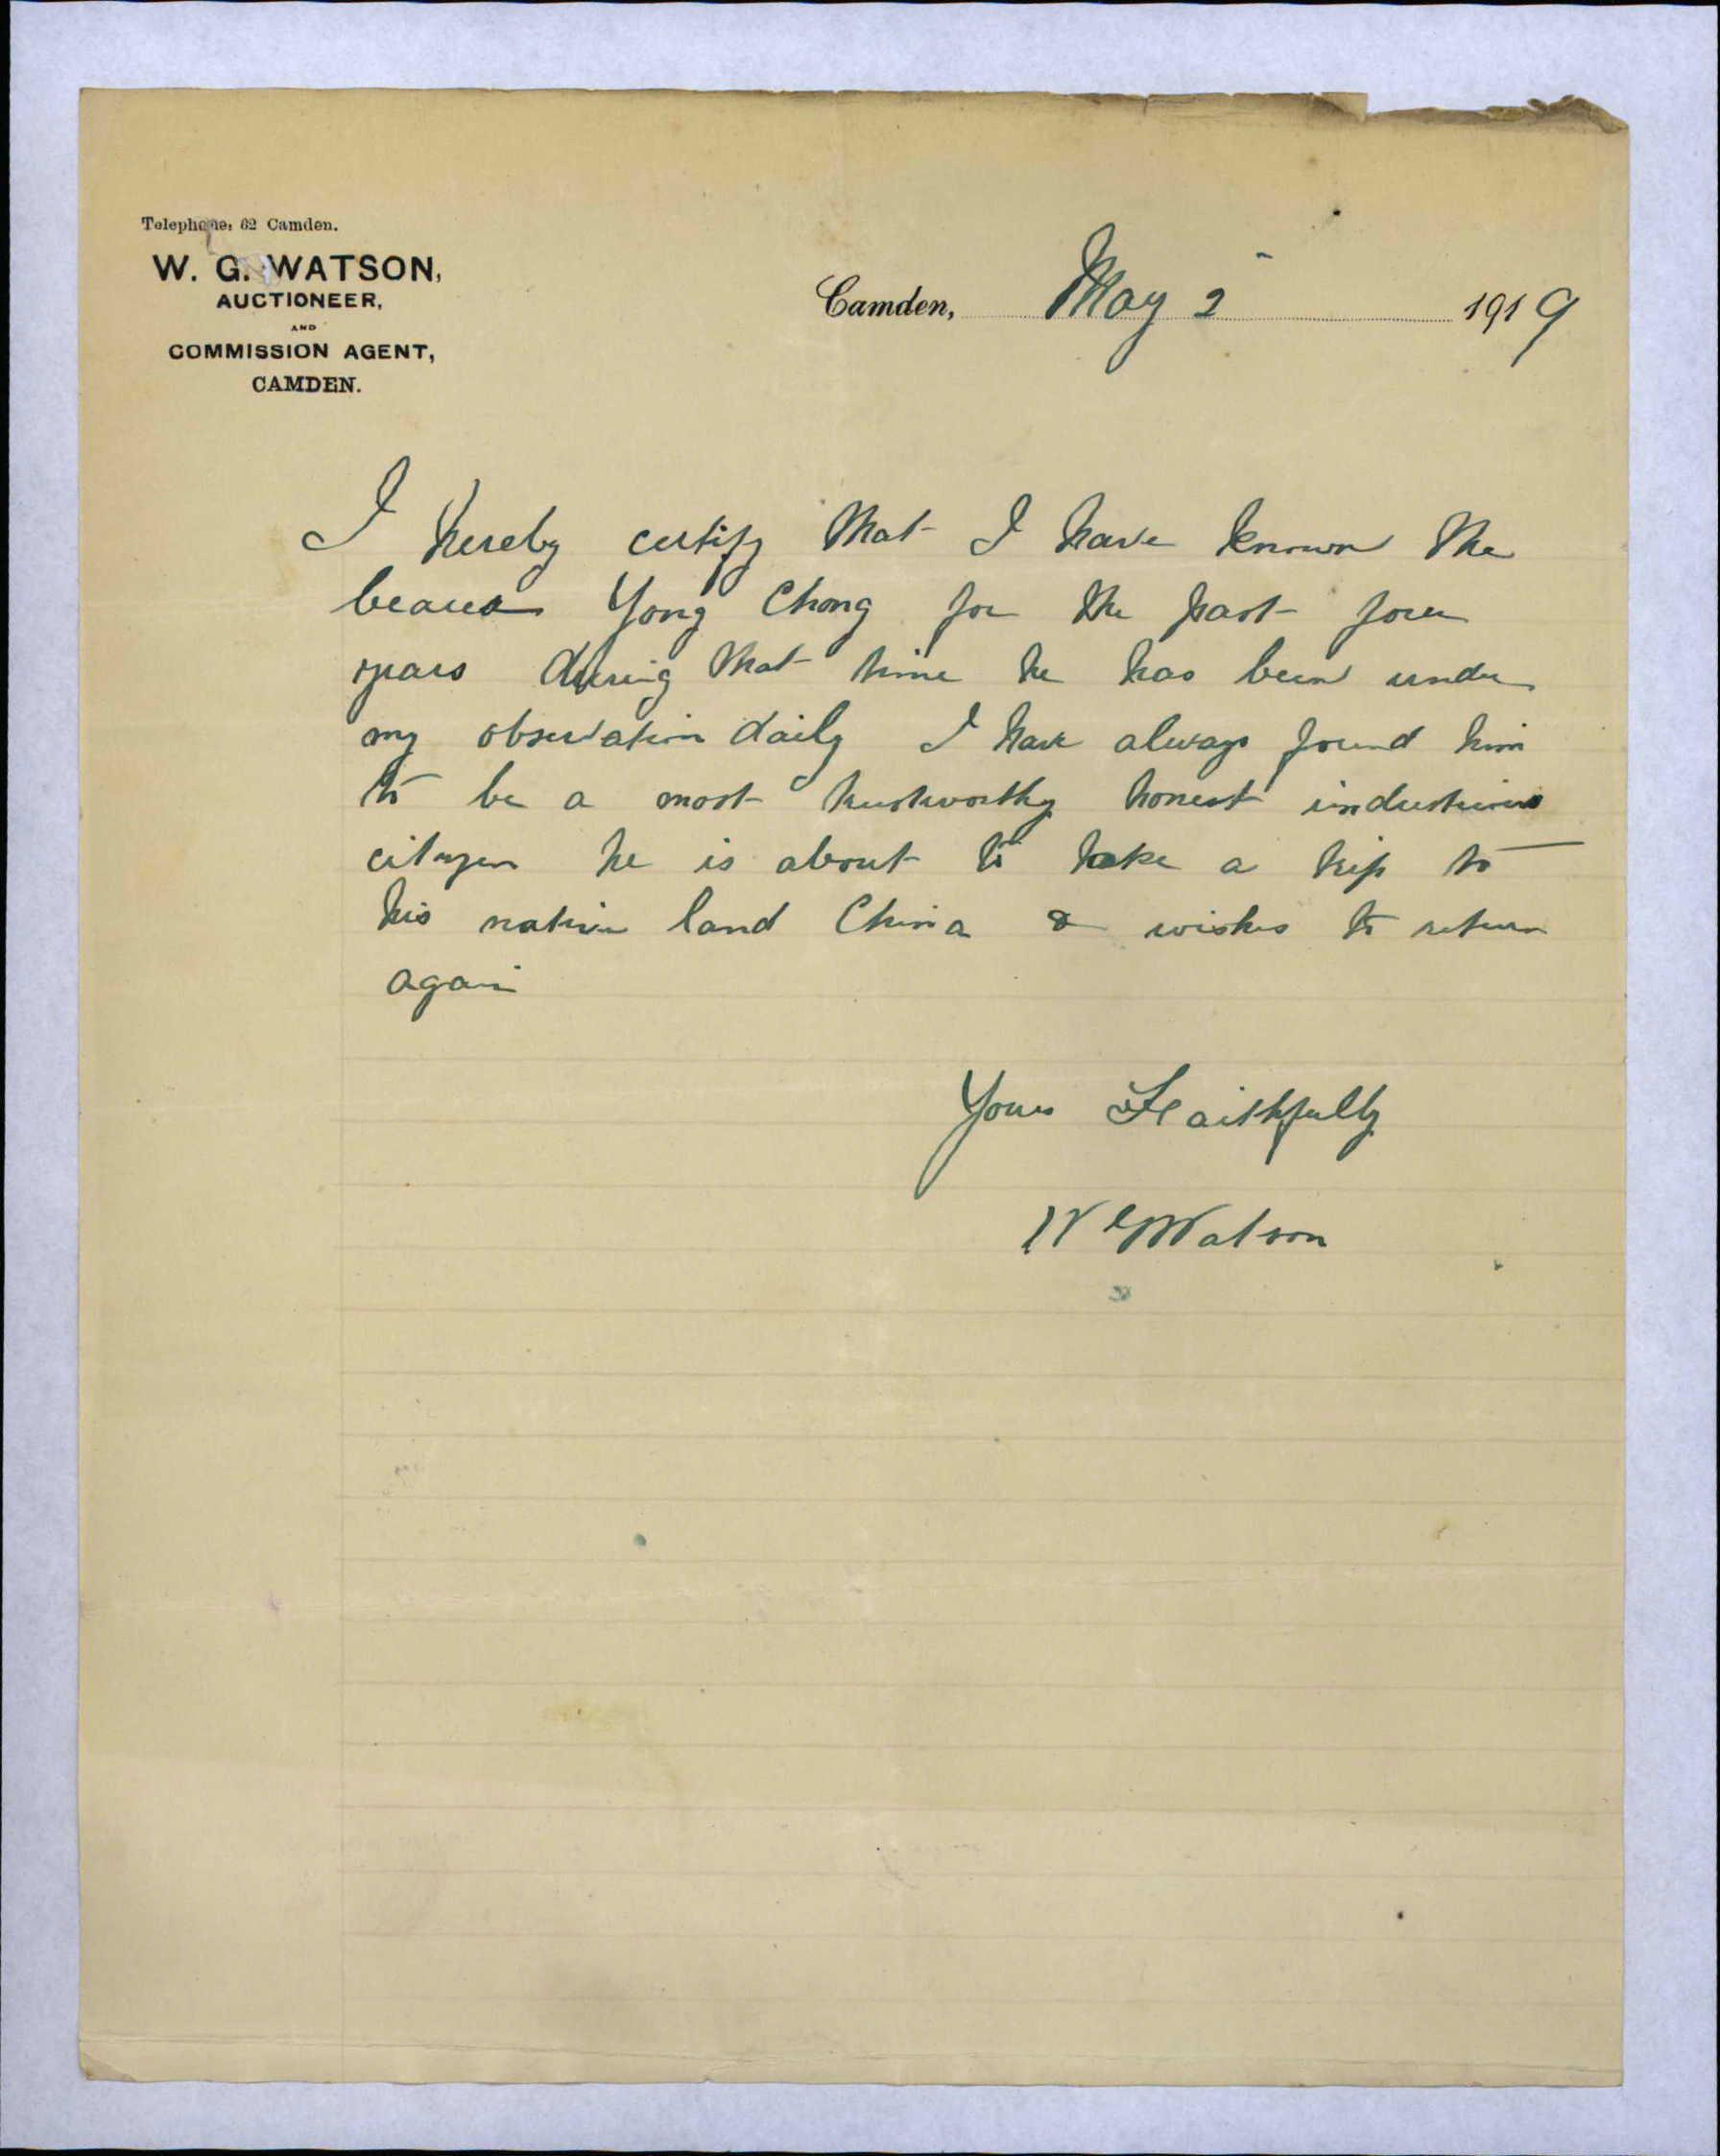 Telephone: 62 Camden.
W. G. WATSON,
AUCTIONEER,
AND
COMMISSION AGENT,
CAMDEN.
Camden, May 2 1919
I hereby certify that I have known the
bearer Yong Chong for the past four
years during that time he has been under
my observation daily I have always found him
to be a most trustworthy honest industrious
citizen he is about to take a trip to
his native land China & wishes to return
again
Yours Faithfully
W G Watson